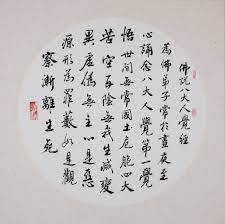 佛說八大人覺經
為佛弟子常於晝夜至
心誦念八大人覺第一覺
悟世間無常國土危脆四大
苦空五陰無我生滅變
異虛偽無主心是惡
源形為罪藪如是觀
察漸離生死